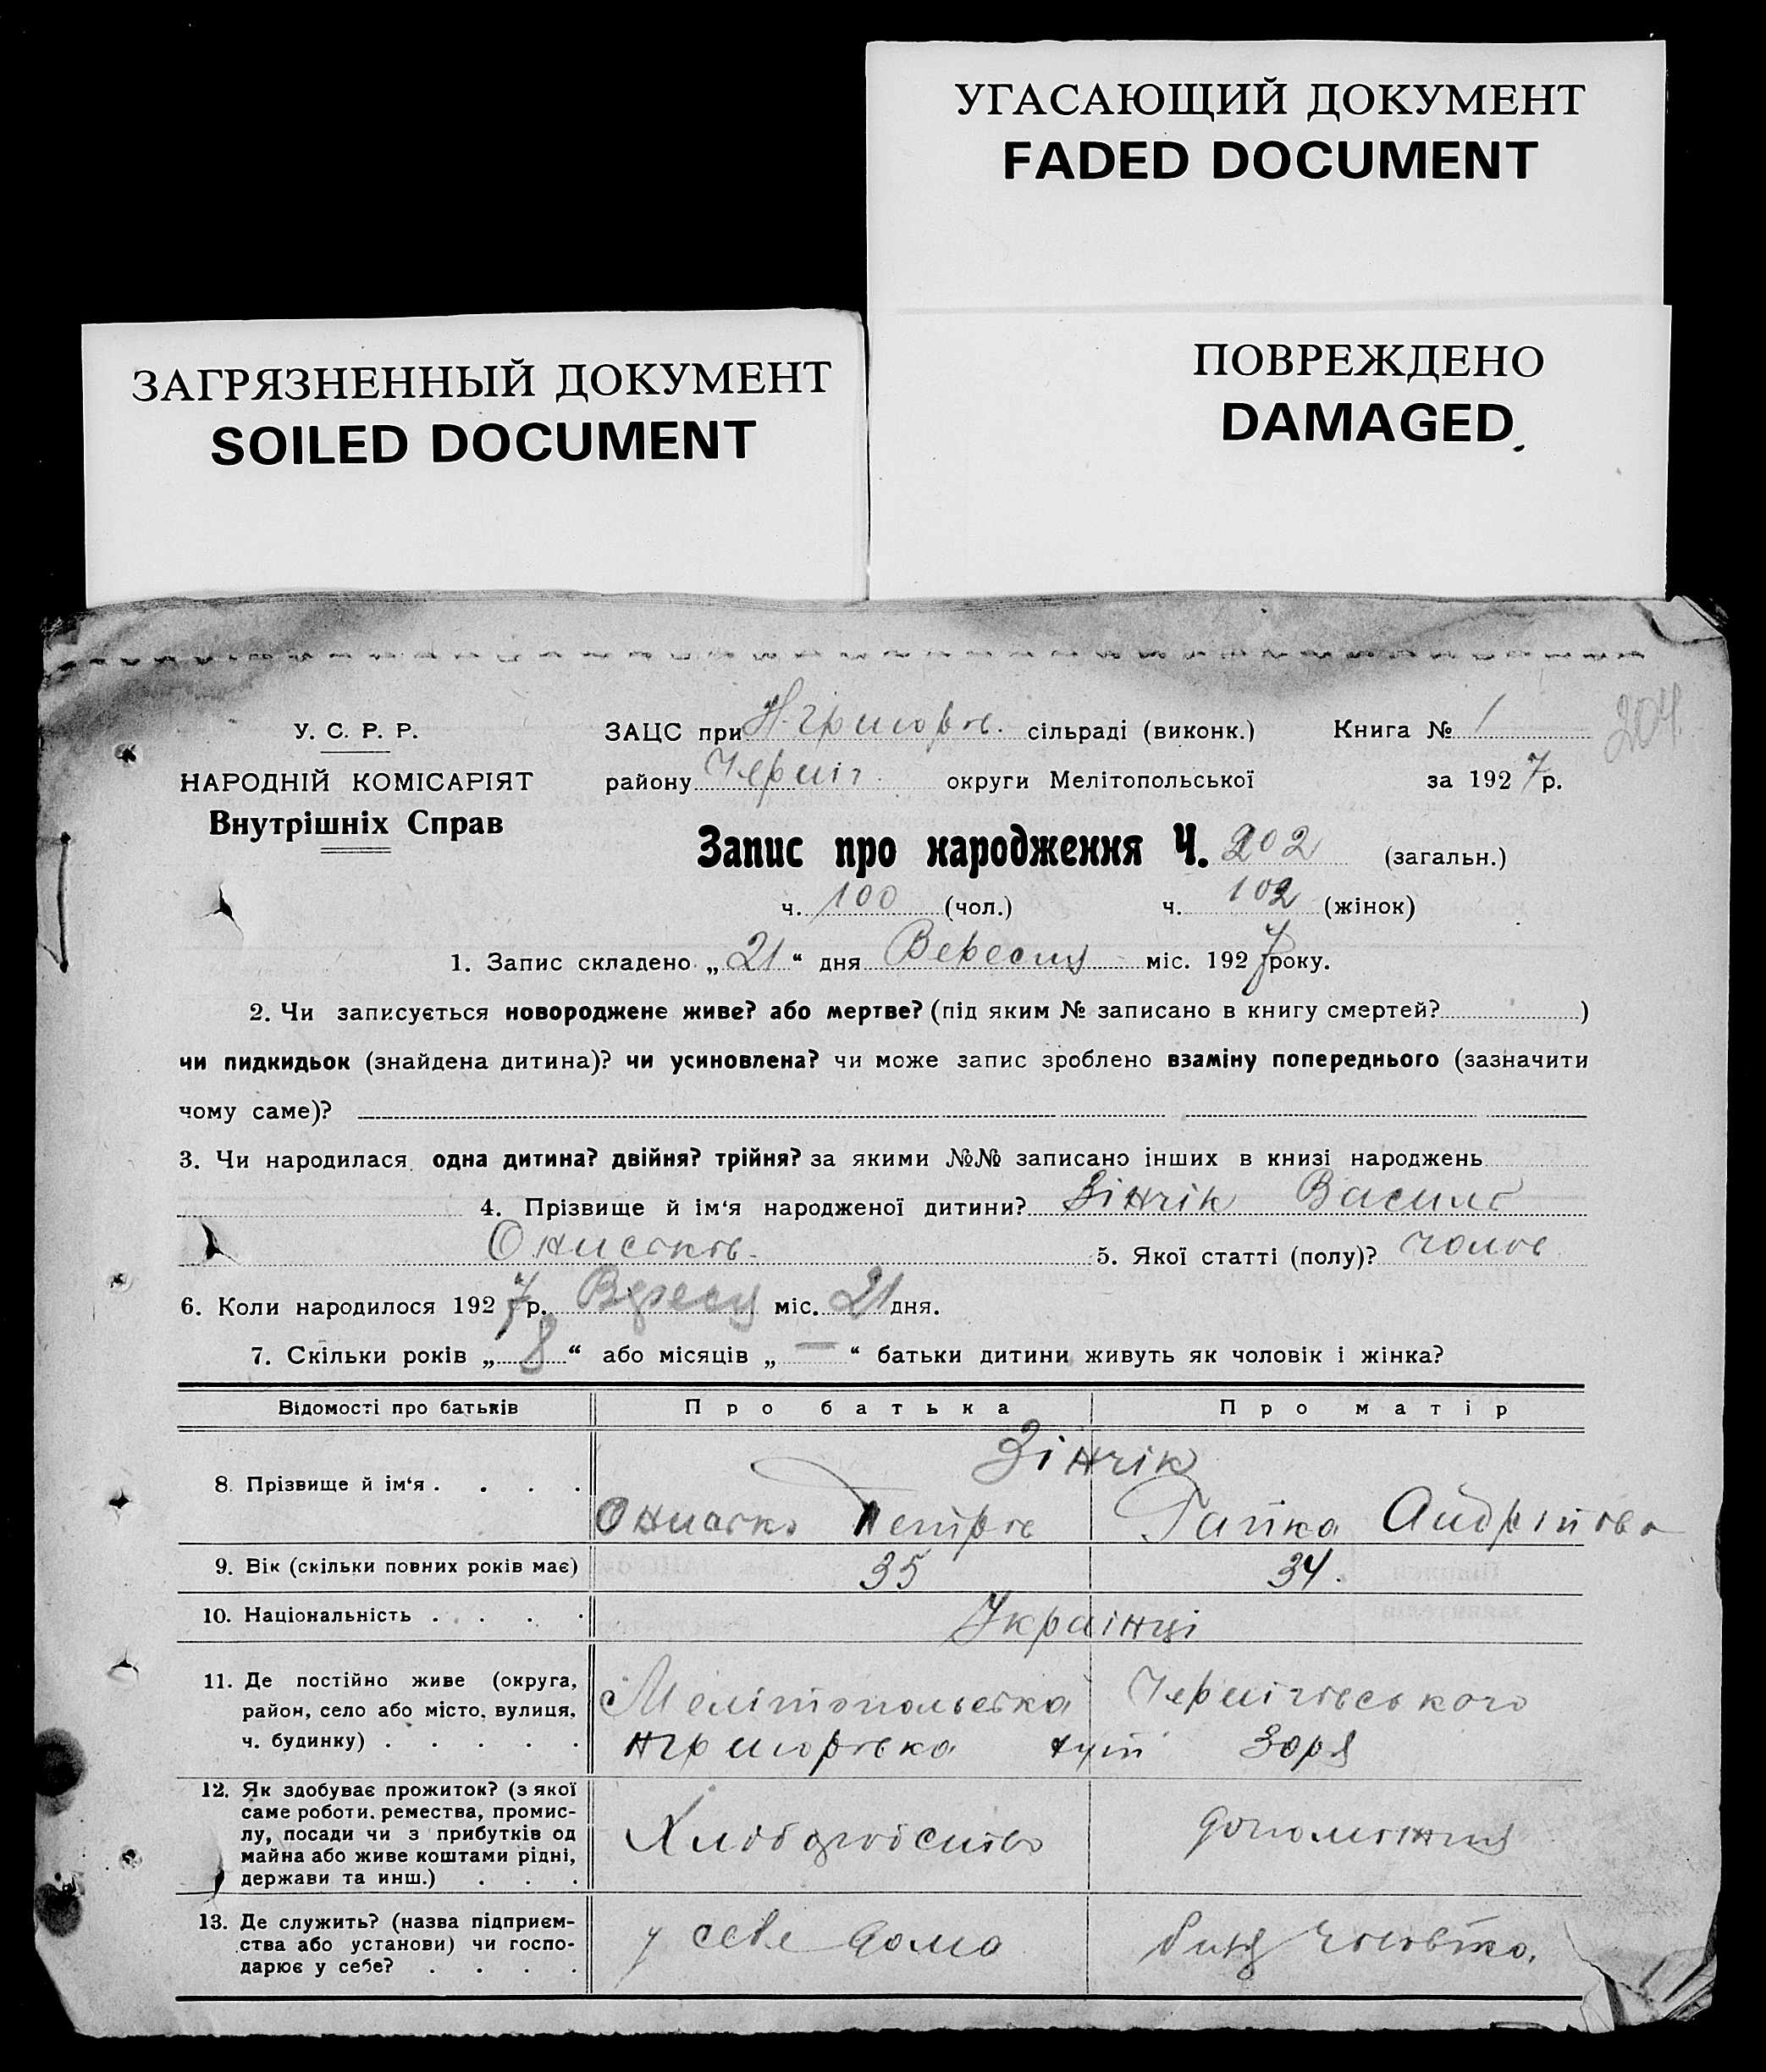 УГАСАЮЩИЙ ДОКУМЕНТ
FADED DOCUMENT
ЗАГРЯЗНЕННЫЙ ДОКУМЕНТ
SOILED DOCUMENT
ПОВРЕЖДЕНО
DAMAGED
204
У. С. Р. Р.
НАРОДНІЙ КОМІСАРІЯТ
Внутрішніх Справ
ЗАЦС при Н-Григоров. сільраді (виконк.) Книга № 1
району Черніг. округи Мелітопольської за 1927 р.
Запис про народження Ч. 202 (загальн.)
ч. 100 (чол.) ч. 102 (жінок)
1. Запис складено „21“ дня Вересня міс. 1927 року.
2. Чи записується новороджене живе? або мертве? (під яким № записано в книгу смертей? )
чи пидкидьок (знайдена дитина)? чи усиновлена? чи може запис зроблено взаміну попереднього (зазначити
чому саме)?
3. Чи народилася одна дитина? двійня? трійня? за якими №№ записано інших в книзі народжень
4. Прізвище й ім‘я народженої дитини? Зінчік Василь
Ониськов. 5. Якої статті (полу)? чолов
6. Коли народилося 1927 р. Вересня міс. 21 дня.
7. Скільки років „8“ або місяців „—“ батьки дитини живуть як чоловік і жінка?
Відомості про батьків Про батька Про матір
8. Прізвище й ім‘я . . . . Зінчік
Онисько Петров Гапка Андріївна
9. Вік (скільки повних років має) 35 34.
10. Національність . . . . Українці
11. Де постійно живе (округа, район, село або місто, вулиця, ч. будинку) . . . . .
Мелітопольська Чернігівського
Нгригоровка Зоря
12. Як здобуває прожиток? (з якої саме роботи, ремества, промислу, посади чи з прибутків од майна або живе коштами рідні, держави та инш.) . . .
Хліборобство допоможниця
13. Де служить? (назва підприємства або установи) чи господарює у себе? . . . .
у себе дома біля чоловіка.